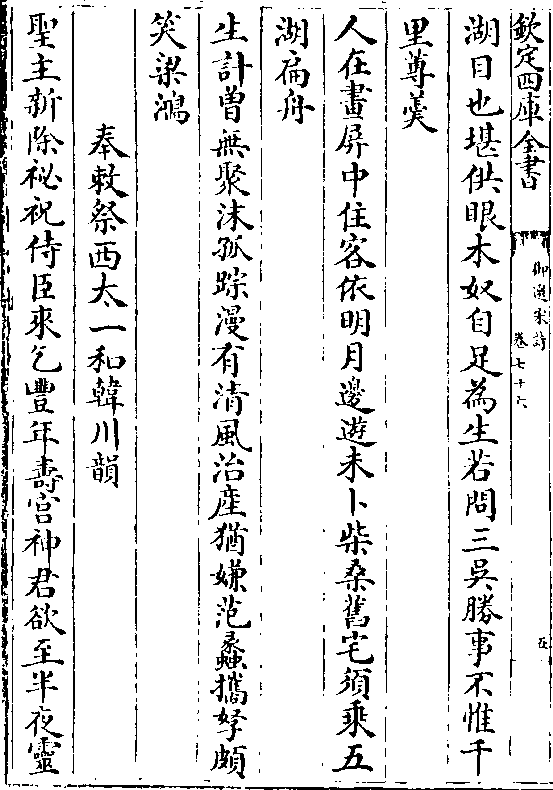 欽定四庫全書
御選宋詩
卷七十六
五
湖目也堪供眼木奴自足為生若問三吳勝事不惟千
里蓴羮
人在畫屏中住客依明月邊遊未卜柴桑舊宅須乘五
湖扁舟
生計曽無聚沫孤踪漫有清風治産猶嫌范蠡攜孥頗
笑梁鴻
奉敕祭西太一和韓川韻
聖主新除祕祝侍臣來乞豐年壽宫神君欲至半夜靈